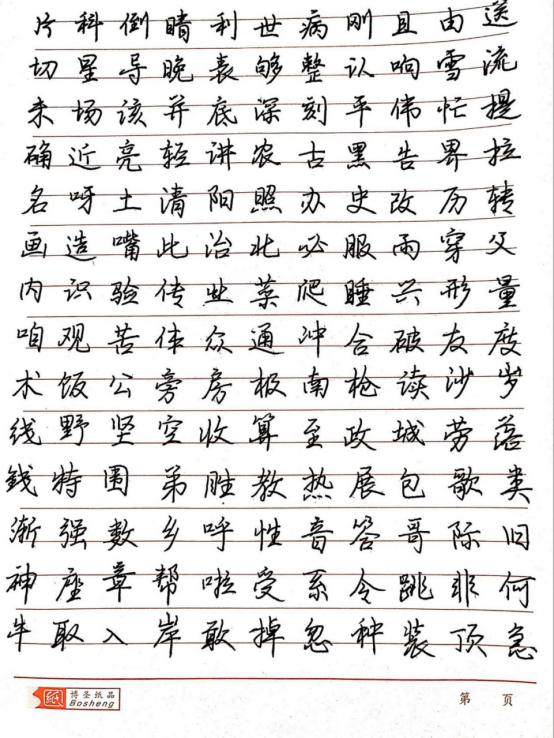 片科倒晴利世病刚且由送
切星导晚表够整认响雪流
未场该并底深刻平伟忙提
确近亮轻讲农古黑告界拉
名呀土清阳照办史改历转
画造嘴此治北必服雨穿父
内识验传业菜爬睡兴形量
咱观苦体众通冲合破友度
术饭公旁房极南枪读沙岁
线野坚空收算至政城劳落
钱特围弟胜教热展包歌类
渐强数乡呼性音答哥际旧
神座章帮啦受系令跳非何
牛取入岸敢掉忽种装顶急
纸 博圣纸品 第 页
Bosheng